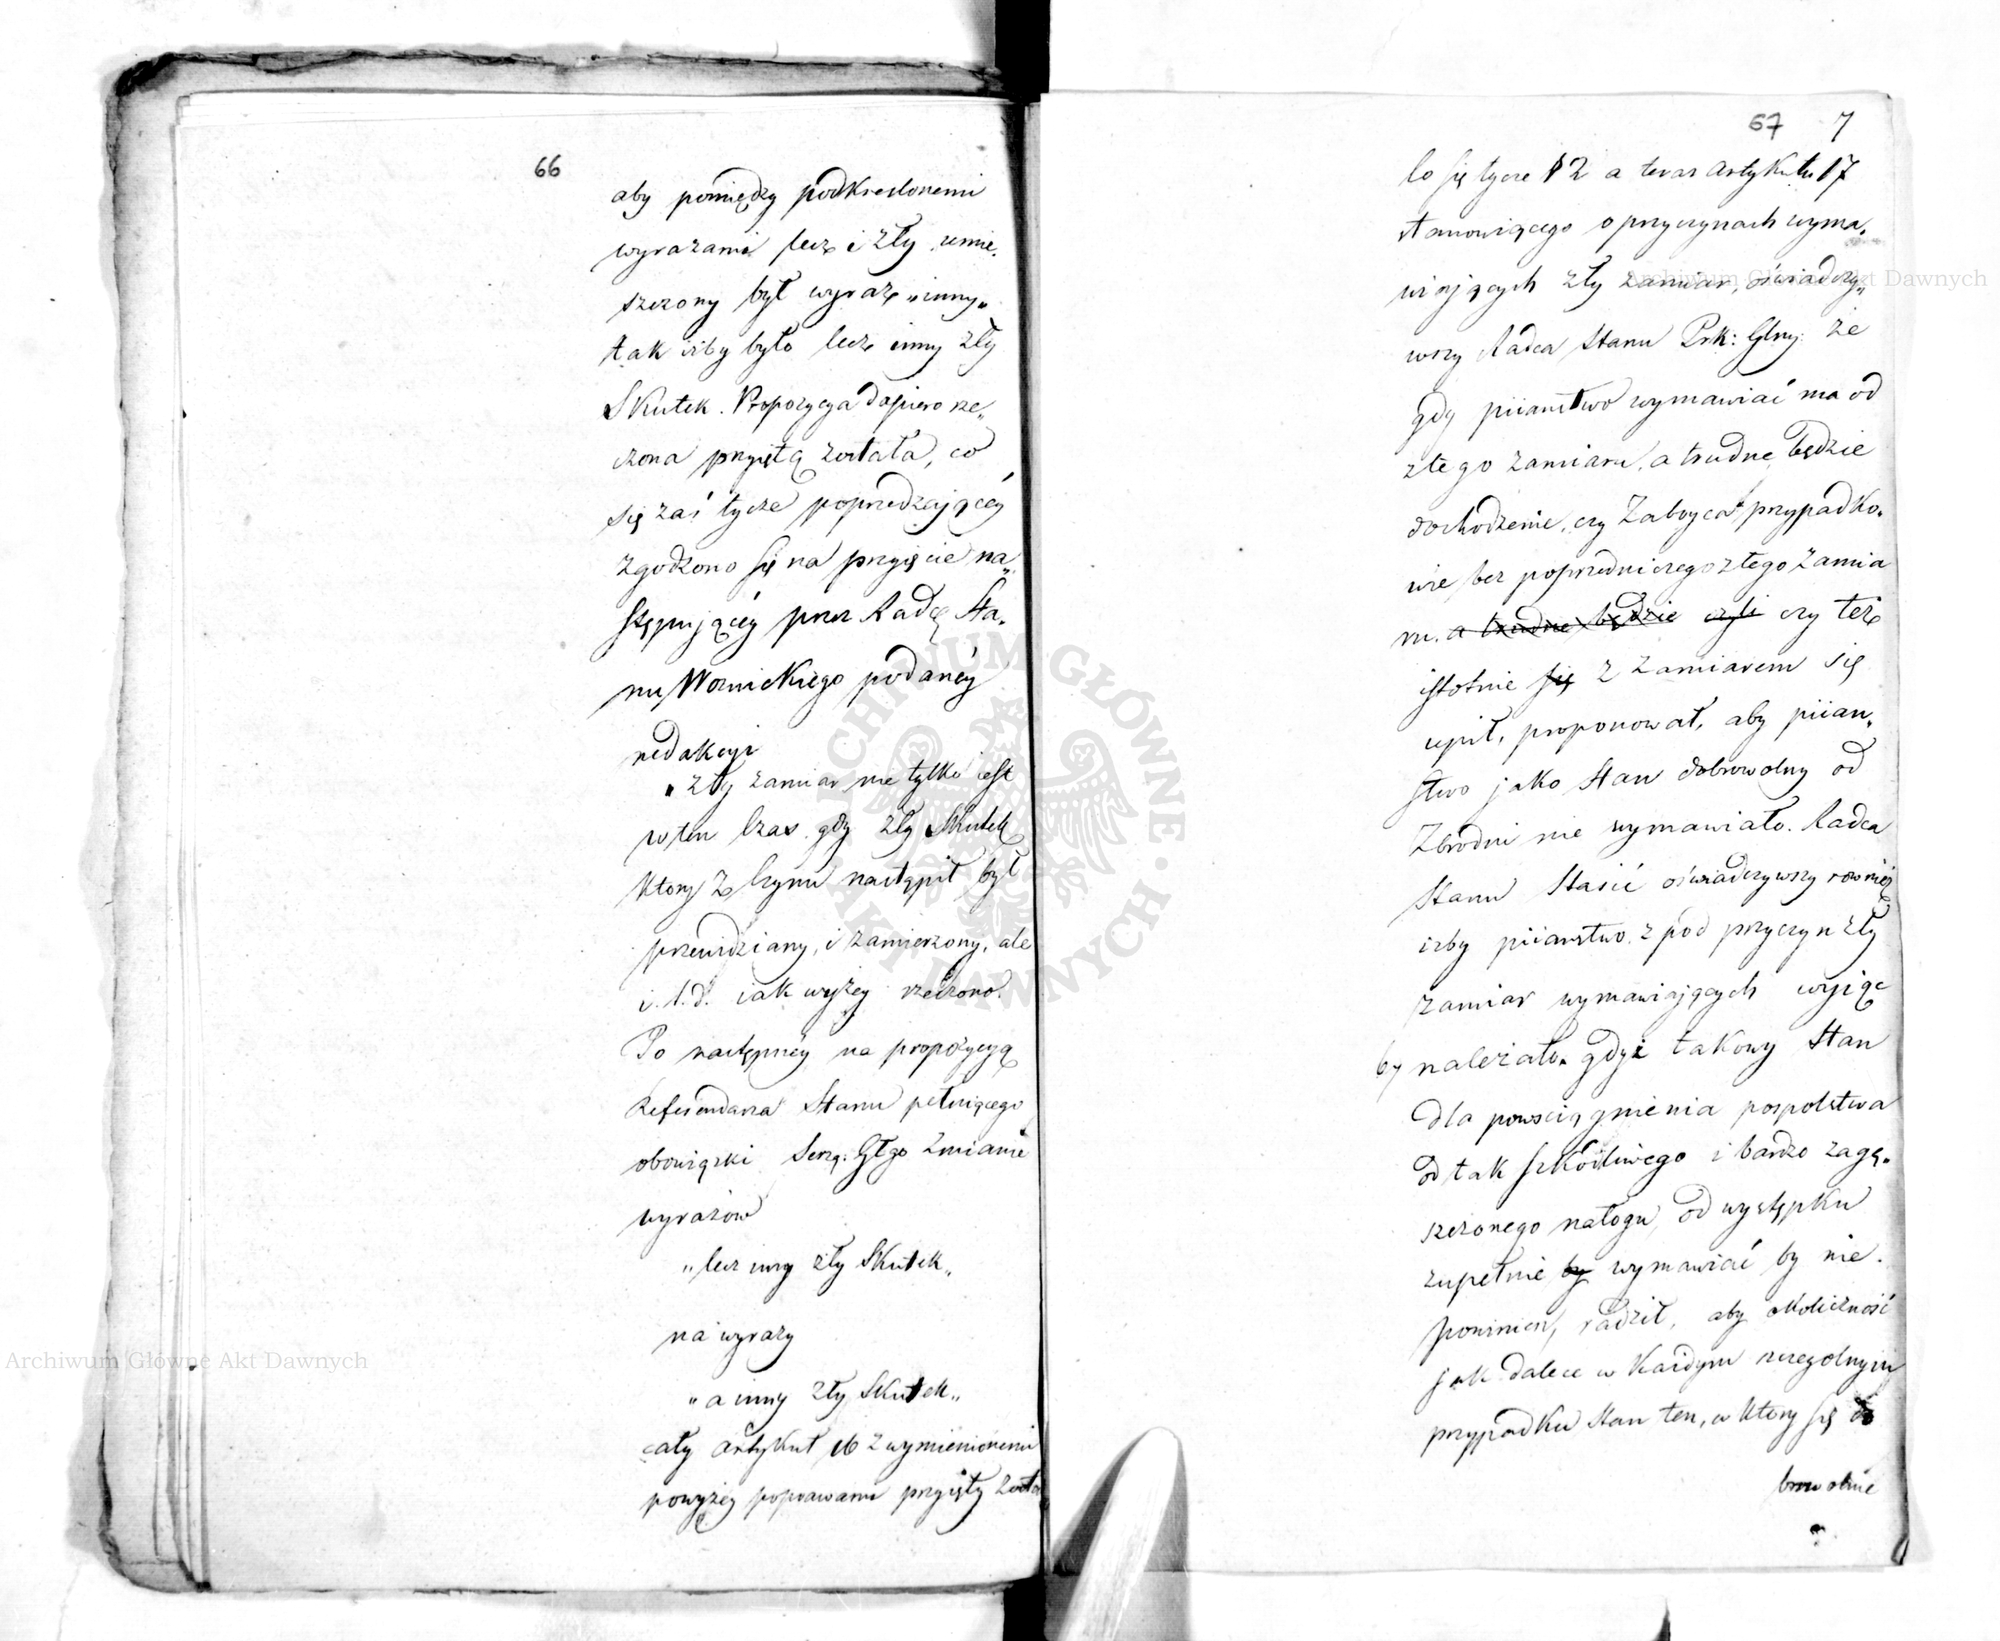 66
aby pomiędzy podkreslonemi
wyrazami lecz i zły umie„
szczony był wyraz „inny„
tak iżby było lecz inny zły
Skutek. Propozycya dopiero rze„
czona przyiętą została, co
się zaś tycze poprzedzaiącéy
zgodzono się na przyięcie na„
stępuiącéy przez Radcę Sta„
nu Woznickiego podanéy
redakcyi
„Zły zamiar nie tylko iest
w ten czas gdy zły Skutek
który z czynu nastąpił był
przewidziany, i zamierzony, ale
i. t. d. iak wyżey rzeczono.
Po następnéy na propozycyą
Referendarza Stanu pełniącego
obowiązki Sekrą: Głgo zmianie
wyrazów
„lecz inny zły Skutek„
na wyrazy
„a inny zły Skutek„
cały artykuł 16 z wymienionemi
powyżey poprawami przyięty zosta
67 7
Co się tycze § 2 a teraz Artykułu 17
stanowiącego o przyczynach wyma„
wiaiących zły zamiar, oświadczy„
wszy Radca Stanu Prk: Glny: że
gdy piiaństwo wymawiać ma od
złego zamiaru, a trudne będzie
dochodzenie, czy Zabóyca przypadko„
wie bez poprzedniczego złego zamia
ru. a trudne będzie czyli czy też
istotnie się z zamiarem się
upił, proponował, aby piian„
stwo jako Stan dobrowolny od
Zbrodni nie wymawiało. Radca
Stanu Stasic oświadczywszy również
iżby piiaństwo z pod przyczyn zły
zamiar wymawiaiących wyiąć
by należało, gdyż takowy Stan
dla powsciągnienia pospolstwa
od tak szkodliwego i bardzo zagę„
szczonego nałogu, od występku
zupełnie by wymawiać by nie
powinien, radził, aby okoliczność
jak dalece w każdym szczegolnym
przypadku Stan ten, w który się do
browolnie